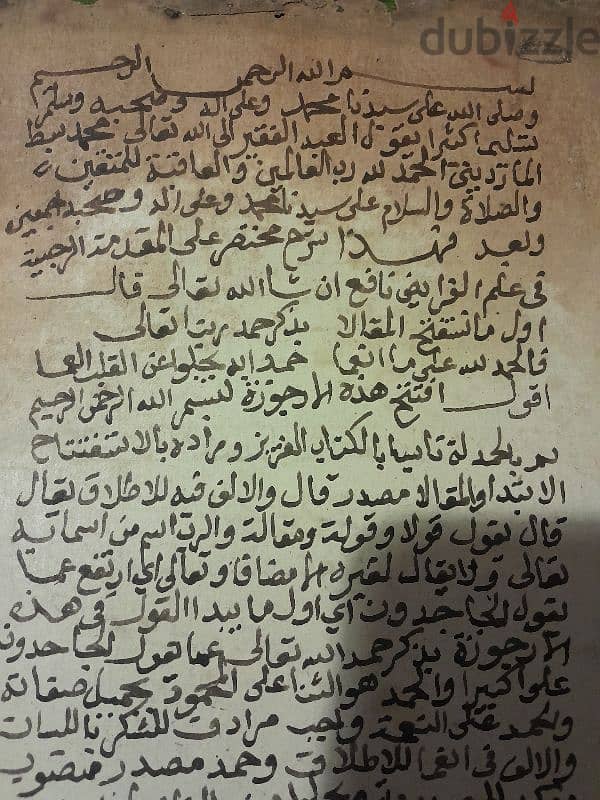 dubizzle
بسم الله الرحمن الرحيم
وصلى الله على سيدنا محمد وعلى اله وصحبه وسلم
تسليما كثيرا يقول العبد الفقير الى الله تعالى محمد سبط
المارديني الحمد لله رب العالمين والعاقبة للمتقين
والصلاة والسلام على سيدنا محمد وعلى اله وصحبه اجمعين
وبعد فهذا شرح مختصر على المقدمة الرحبية
في علم الفرايض نافع ان شا الله تعالى قال
اول ما نستفتح المقالا بذكر حمد ربنا تعالى
فالحمد لله على ما انعما حمدا به يجلوا عن القلب العما
اقول افتتح هذه الارجوزة ببسم الله الرحمن الرحيم
ثم بالحمدلة تاسيا بالكتاب العزيز ومراده بالاستفتاح
الابتدا والمقالا مصدر قال والالف فيه للاطلاق يقال
قال يقول قولا وقولة ومقالة والرب اسم من اسمائه
تعالى ولا يقال لغيره الا مضافا وتعالى اي ارتفع عما
يقول الجاحدون اي اول ما يبدا القول في هذه
الارجوزة بذكر حمد الله تعالى عما يقول الجاحدون
علوا كبيرا والحمد هو الثنا على المحمود بجميل صفاته
والحمد على النعمة واجب مرادف للشكر باللسان
والالف في انعما للاطلاق وحمدا مصدر منصوب